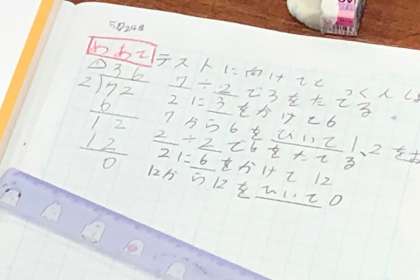 5月24日
めあて テストに向けてとっくんし
① 36
2)72
6
12
12
0
7÷2で3をたてる
2に3をかけて6
7から6をひいて1、2を
2÷2で6をたてる
2に6をかけて12
12から12をひいて0